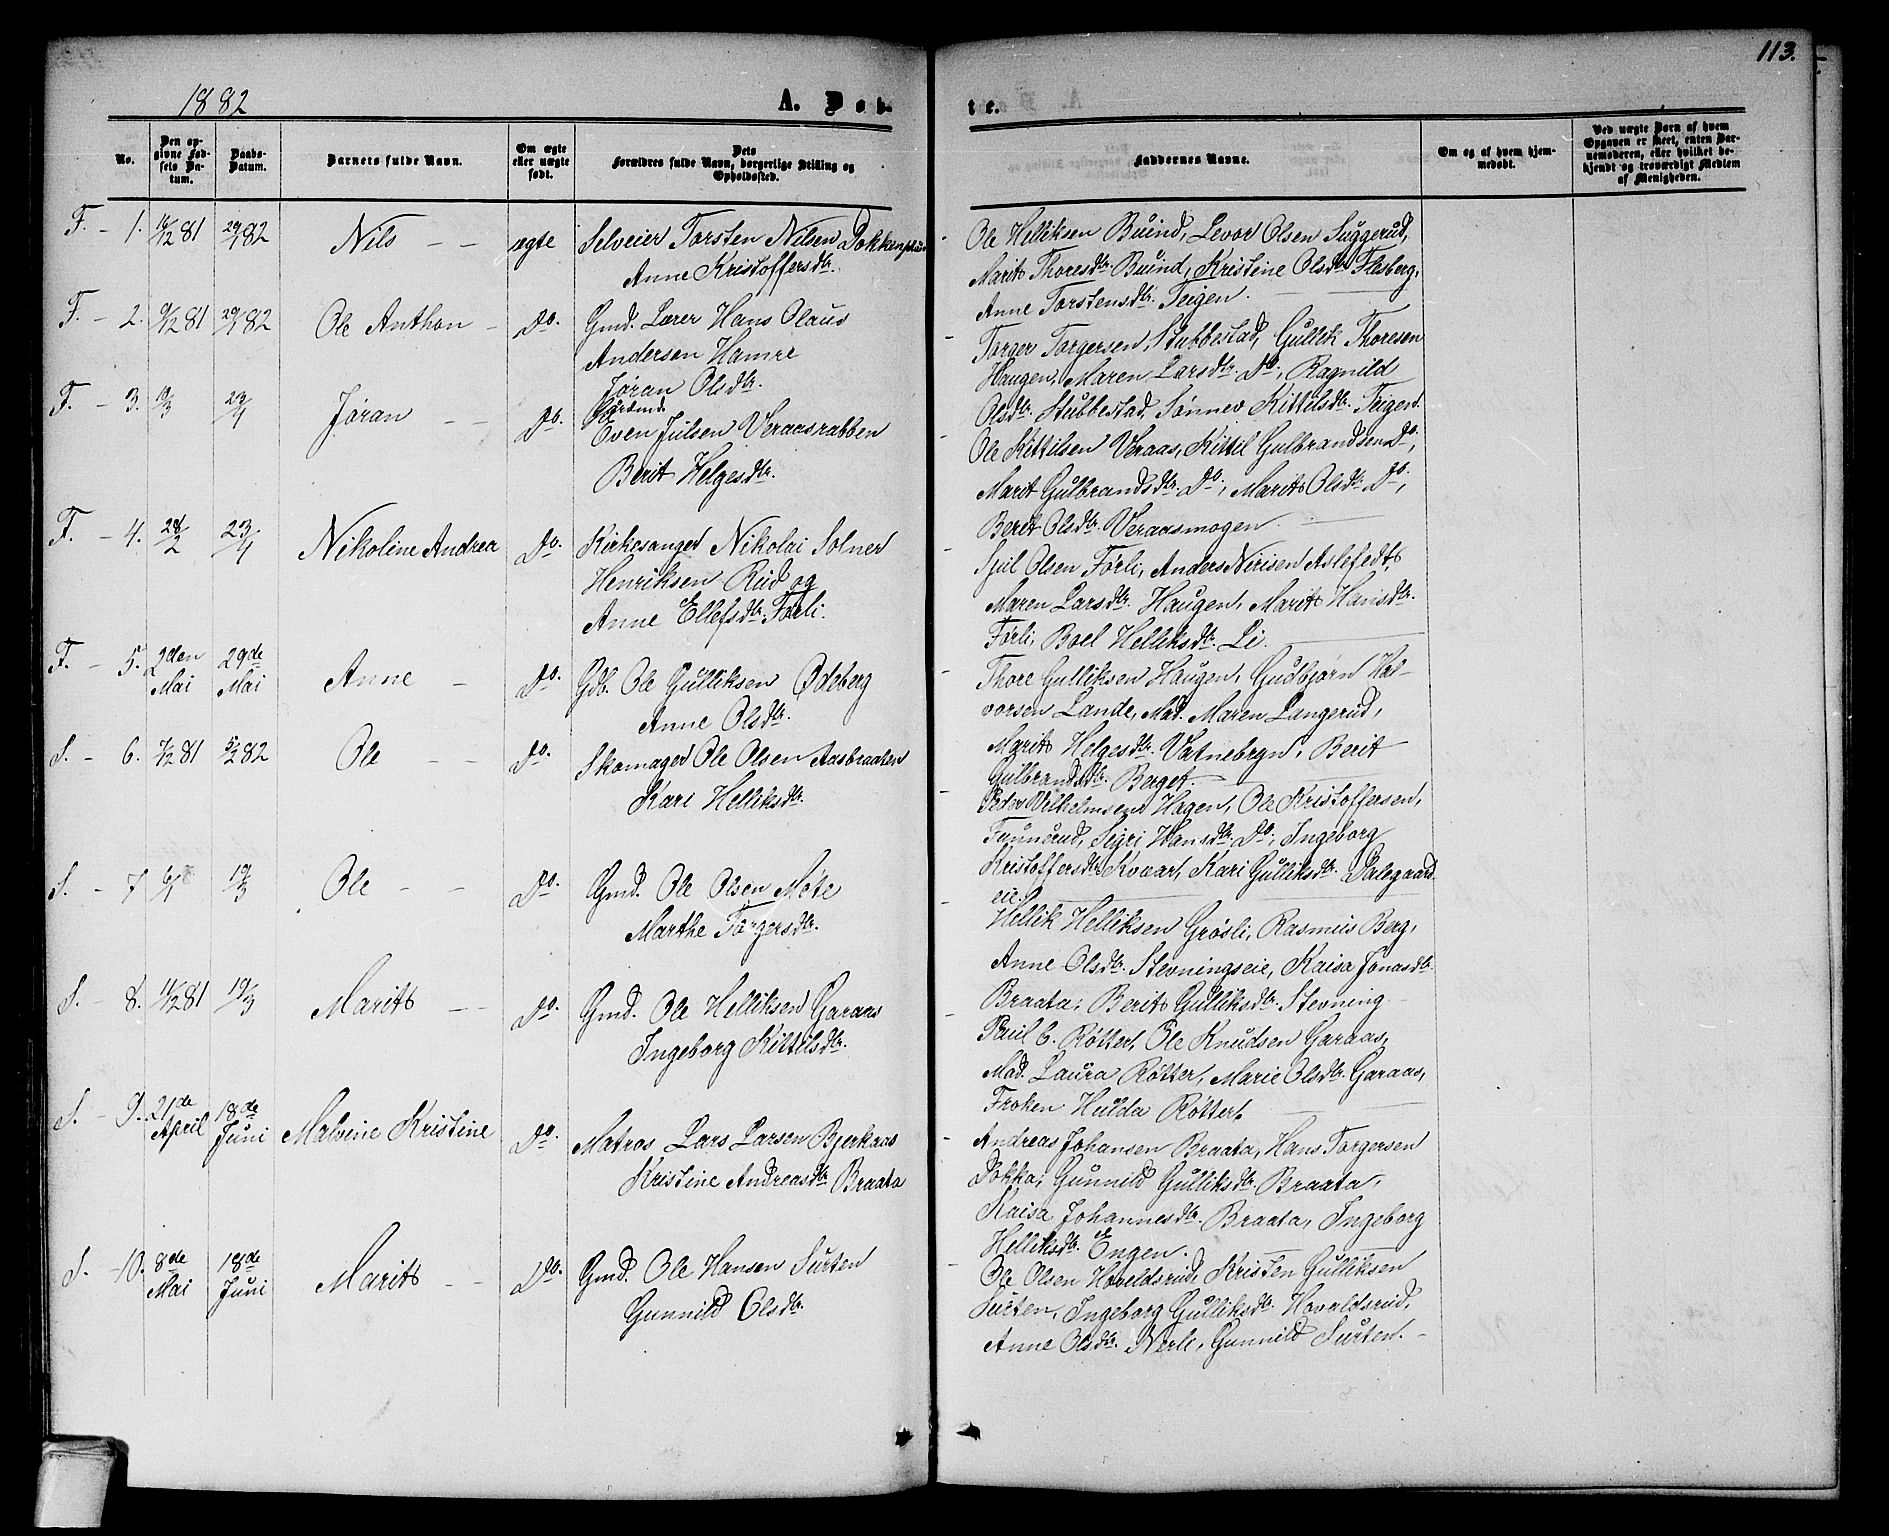 113.
1882
A. Døb-
te.
No.
Den op-
givne Fød-
sels Da-
tum.
Daabs-
Datum.
Barnets fulde Navn.
Om ægte
eller uægte
født.
Dets
Forældres fulde Navn, borgerlige Stilling og
Opholdssted.
Faddernes Navne.
Om og af hvem hjem-
medøbt.
Ved uægte Barn af hvem
Opgaven er skeet, enten Bar-
nemoderen, eller hvilket be-
kjendt og troværdigt Medlem
af Menigheden.
F. - 1. 16/12 81 29/1 82 Nils - - ægte Selveier Torsten Nilsen
Anne Kristoffersdtr.
Ole Helliksen Buind, Levor Olsen Suggerud,
Marit Thoresdtr. Buind, Kristine Olsdtr. Flesberg,
Anne Torstensdtr. Teigen.
F. - 2. 9/12 81 29/1 82 Ole Anthon - Do. Gmd. Lærer Hans Olaus
Andersen Hamre
Jøran Olsdtr.
Torger Torgersen Stubbestad, Gullik Thoresen
Haugen, Maren Larsdtr. Do, Ragnild
Olsdtr. Stubbestad, Sønnev Kittilsdtr. Teigen.
F. - 3. 10/3 23/4 Jøran - - Do.
Even Julsen Veraasrabben
Berit Helgesdtr.
Ole Kittilsen Veraas, Kittil Gulbrandsen Do,
Marit Gulbrandsdtr. Do, Marit Olsdtr. Do,
Berit Olsdtr. Veraasmogen.
F. - 4. 28/2 23/4 Nikoline Andrea Do. Kirkesanger Nikolai Solner
Henriksen Rud og
Anne Ellefsdtr. Førli.
Sjul Olsen Førli, Anders Nirisen Aslefedt,
Maren Larsdtr. Haugen, Marit Hansdtr.
Førli, Boel Helliksdtr. Li.
F. - 5. 2den Mai 29de Mai Anne - Do. Gdb. Ole Gulliksen Ødeberg
Anne Olsdtr.
Thore Gulliksen Haugen, Gudbjørn Hal-
vorsen Lande, Mad. Maren Langerud,
Marit Helgesdtr. Vatnebryn, Berit
Gulbrandsdtr. Berget.
S. - 6. 7/12 81 5/2 82 Ole - - Do. Skomager Ole Olsen Aasbraaten
Kari Helliksdtr.
Peder Vilhelmsen Hagen, Ole Kristoffersen,
Funnerud, Sigri Hansdtr. Do, Ingeborg
Kristoffersdtr. Kvaar, Kari Gulliksdtr. Dalegaard-
eie.
S. - 7 6/1 19/3 Ole - - Do. Gmd. Ole Olsen Møte
Marthe Torgersdtr.
Hellik Helliksen Grøsli, Rasmus Berg,
Anne Olsdtr. Stevningseie, Kaisa Jonasdtr.
Braata, Berit Gulliksdtr. Stevning
S. - 8. 11/12 81 19/3 Marit - - Do. Gmd. Ole Helliksen Garaas
Ingeborg Kittilsdtr.
Paul C. Røtter, Ole Knudsen Garaas,
Mad. Laura Røtter, Marie Olsdtr. Garaas,
Frøken Hulda Røtter.
S. - 9. 21de April 18de Juni Malvine Kristine Do. Matros Lars Larsen Bjerkaas
Kristine Andreasdtr. Braata
Andreas Johansen Braata, Hans Torgersen
Dokka, Gunnild Gulliksdtr. Braata,
Kaisa Johannesdtr. Braata, Ingeborg
Helliksdtr. Engen.
S. - 10. 8de Mai 18de Juni Marit - - Do. Gmd. Ole Hansen Surten
Gunnild Olsdtr.
Ole Olsen Hovldsrud, Kristen Gulliksen
Surten, Ingeborg Gulliksdtr. Hovaldsrud,
Anne Olsdtr. Nerli, Gunnild Surten.